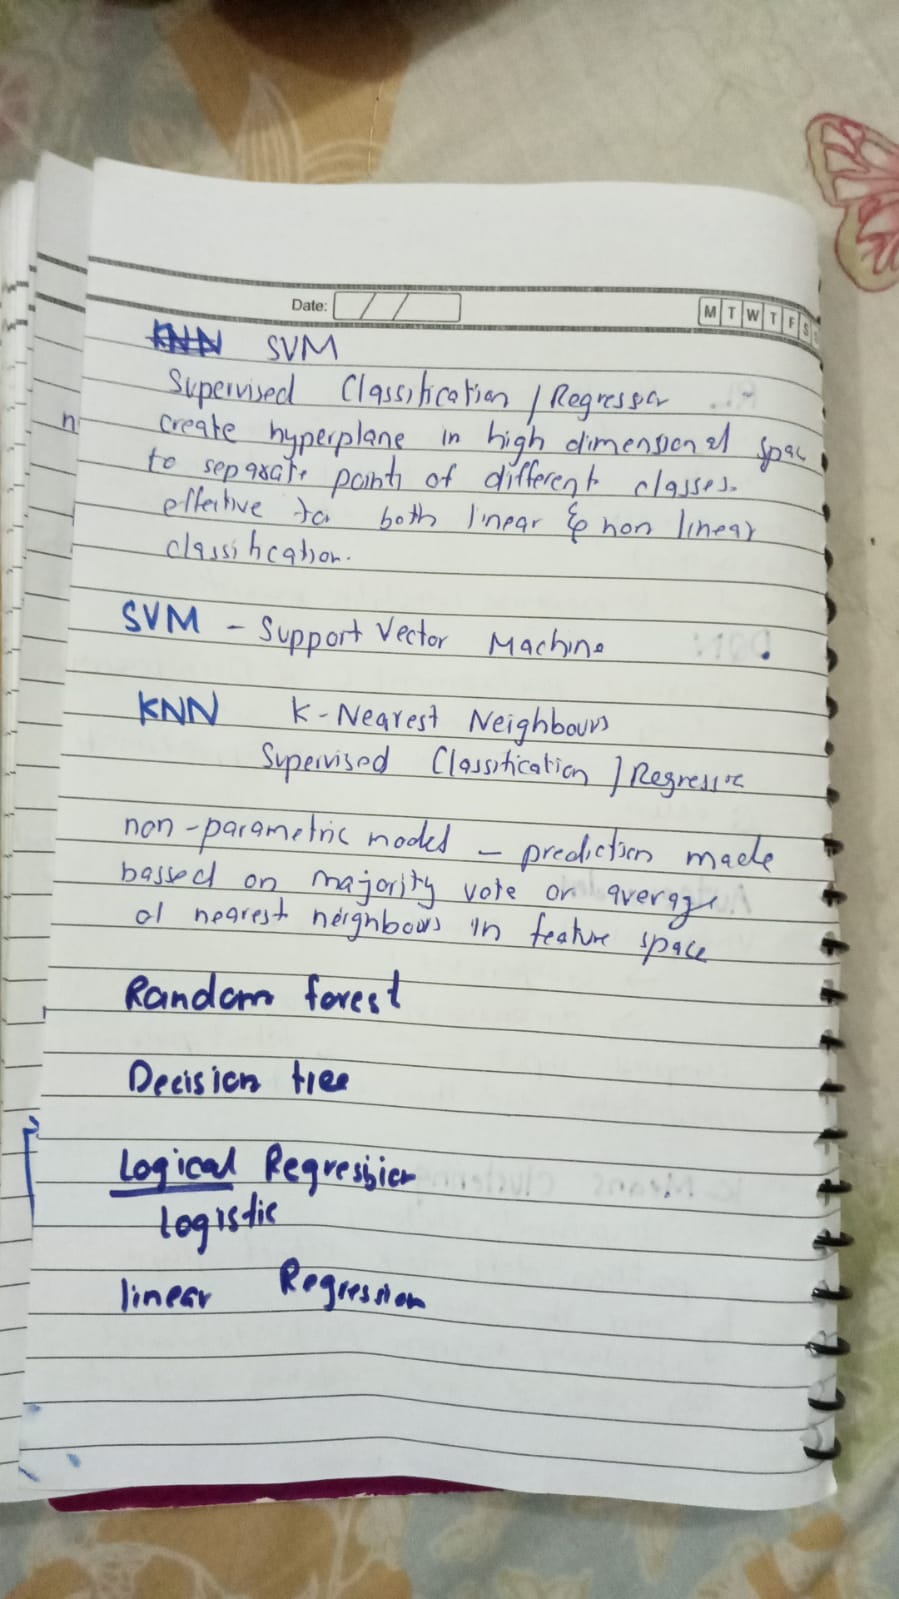 Date: / /
M T W T F S
KNN SVM
Supervised Classification / Regression
create hyperplane in high dimensional space
to separate points of different classes.
effective for both linear & non linear
classification.
n
SVM - Support Vector Machine
KNN K-Nearest Neighbours
Supervised Classification / Regression
non-parametric model - prediction made
bassed on majority vote or average
of nearest neighbours in feature space
Random forest
Decision tree
Logical Regression
Logistic
linear Regression